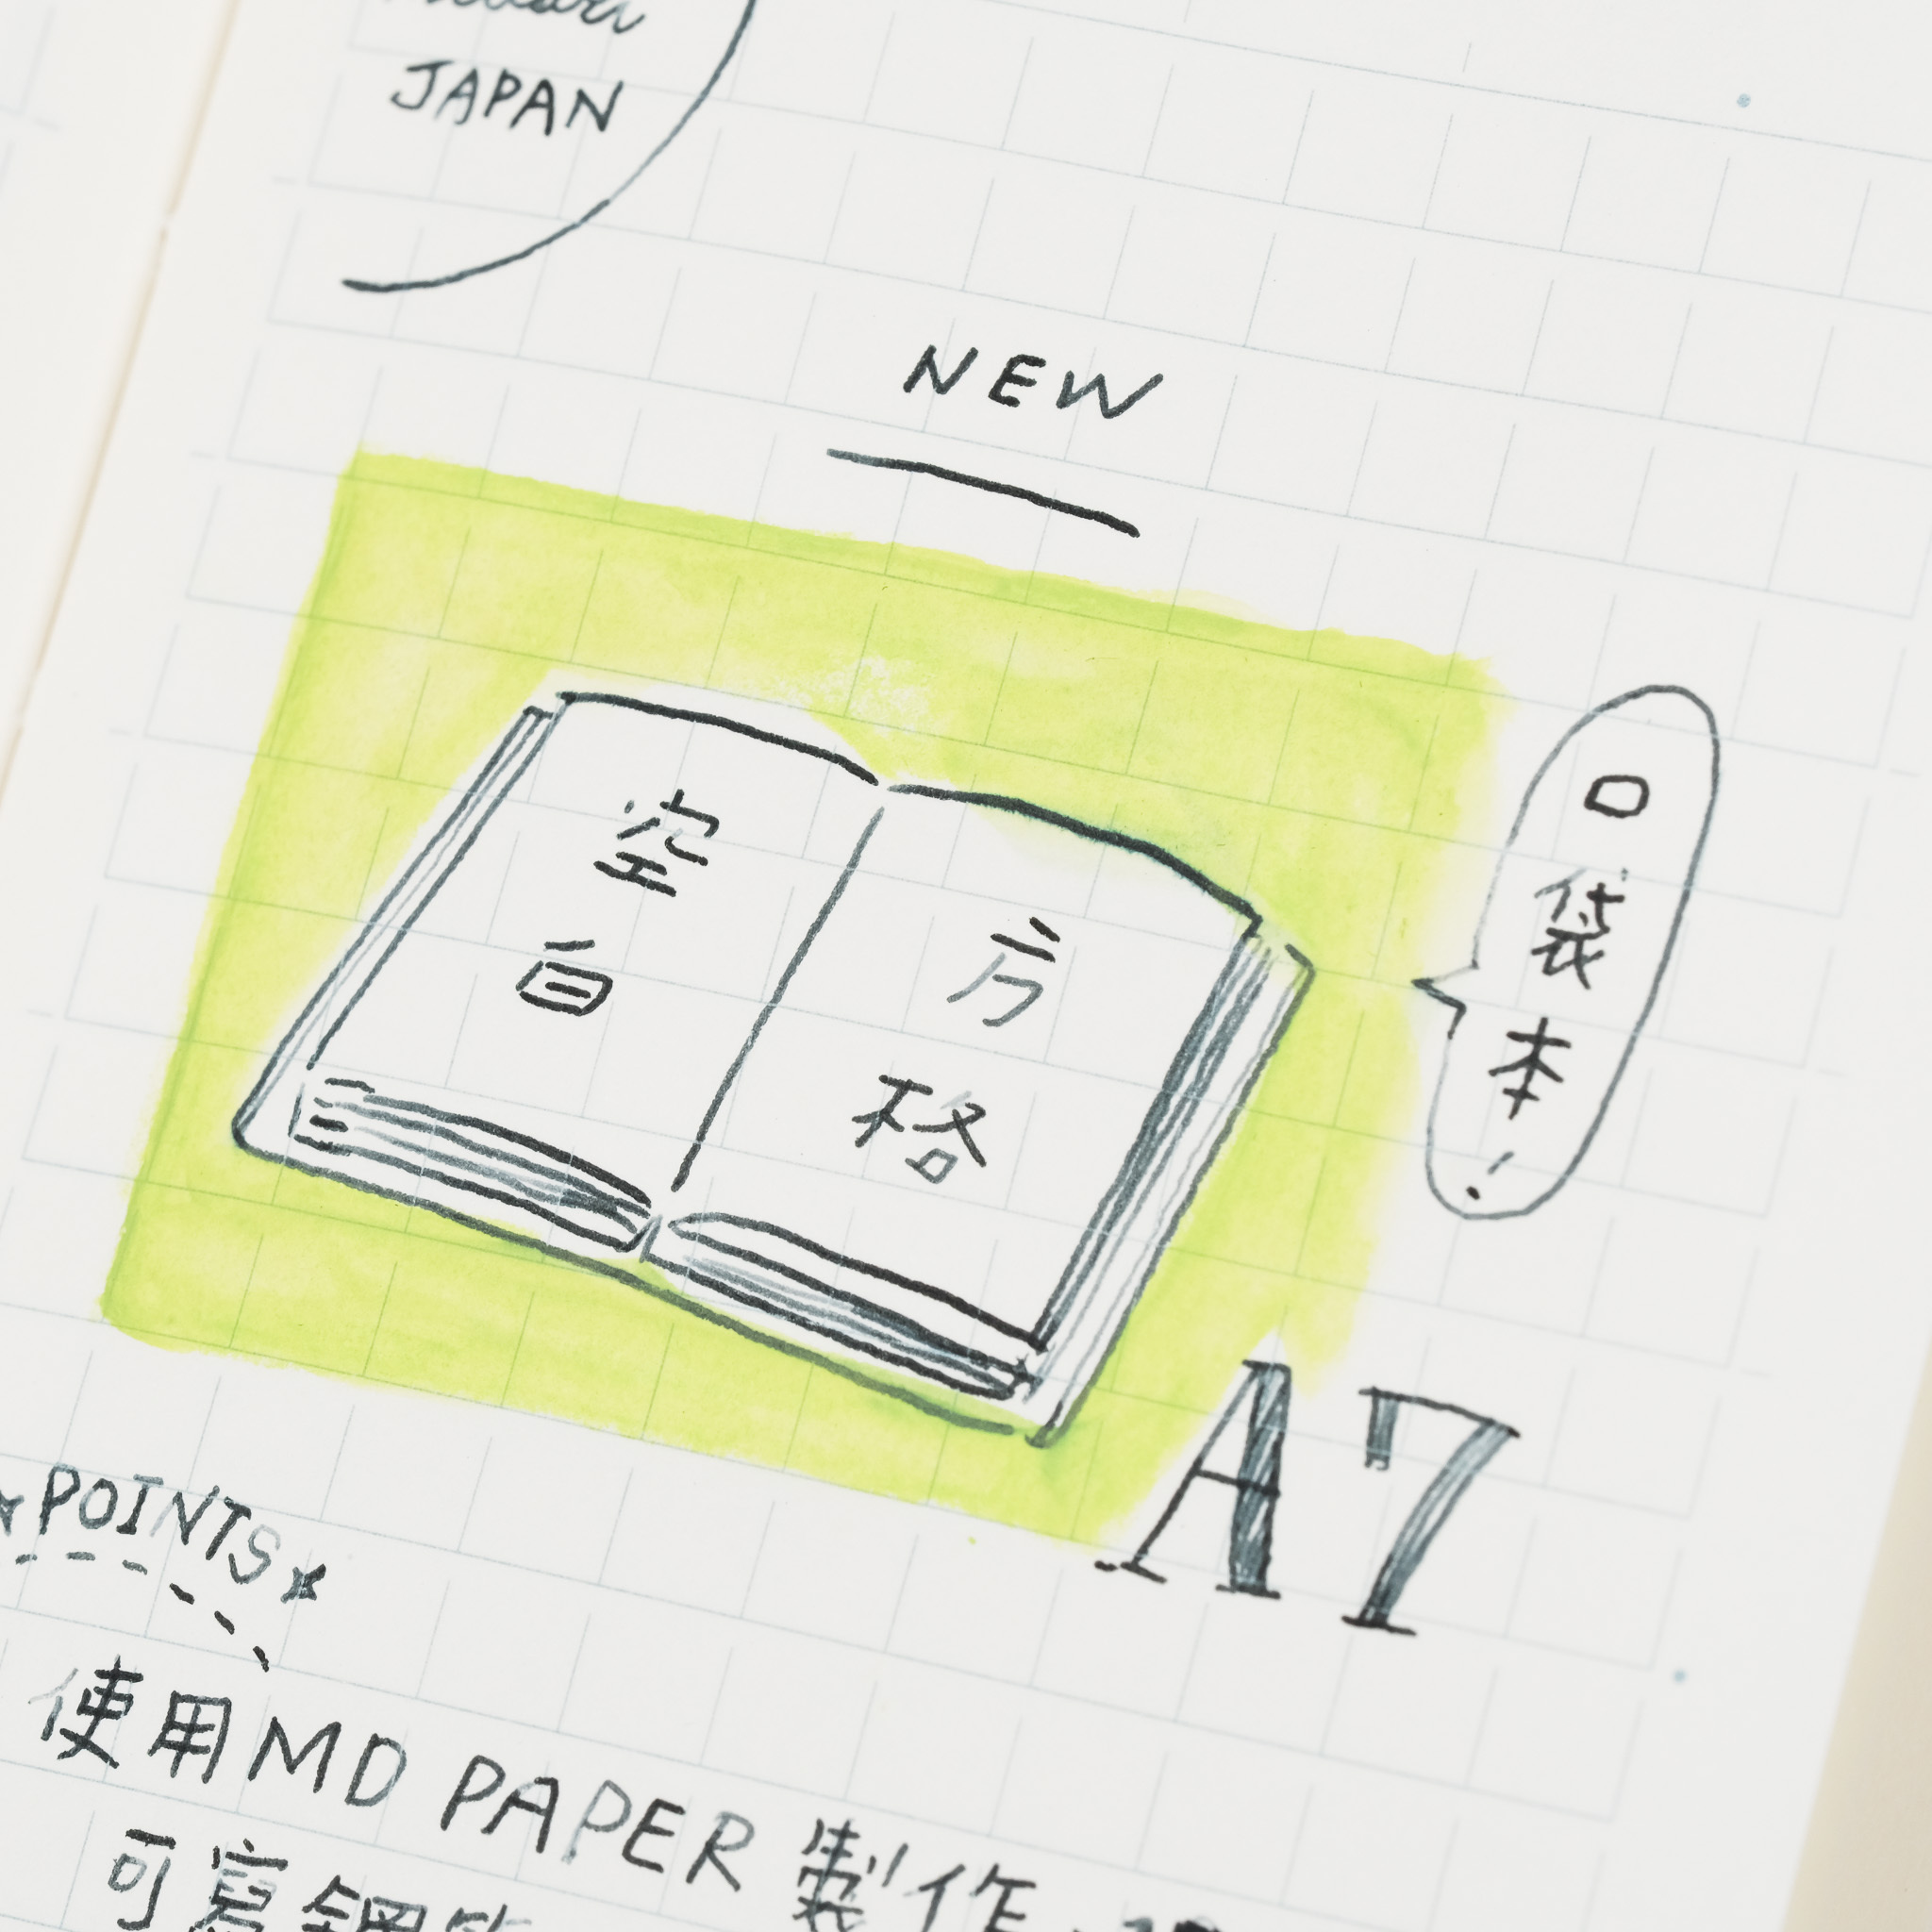 JAPAN
NEW
空白
方格
口袋本!
A7
POINTS
使用MD PAPER 製作
可寫鋼筆